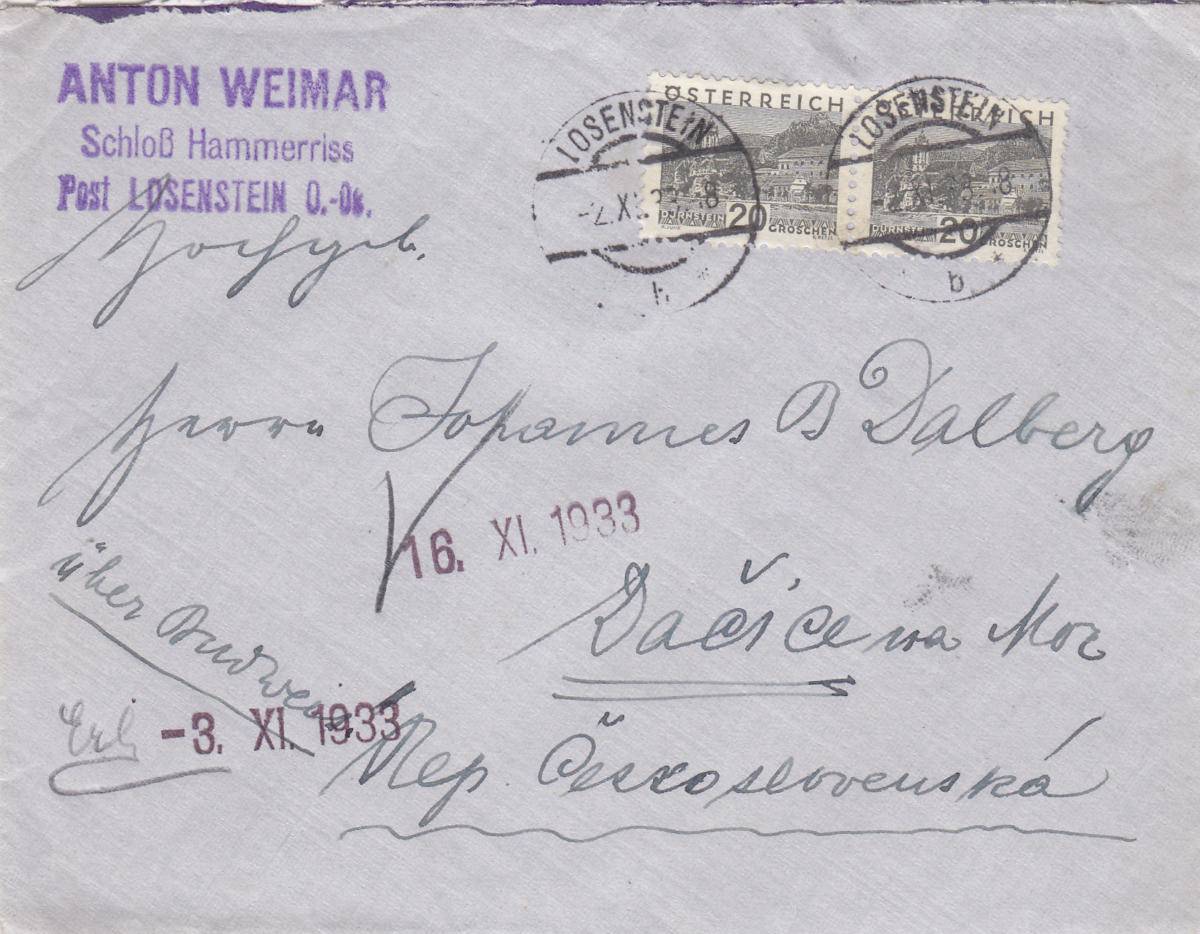 ANTON WEIMAR
Schloß Hammerriss
Post LOSENSTEIN O.-Oe.
ÖSTERREICH
DÜRNSTEIN
20
GROSCHEN
ÖSTERREICH
DÜRNSTEIN
20
GROSCHEN
LOSENSTEIN
-2.XI.33 18
LOSENSTEIN
-2.XI.33 18
b
Hochgeb.
Herrn Johannes B Dalberg
16. XI. 1933
Dačice na Mor
über Budweis
-3. XI. 1933
Rep. Československá